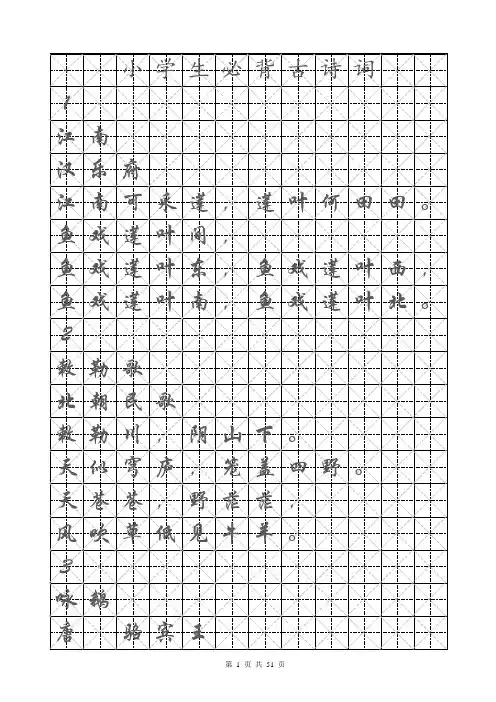 小学生必背古诗词
1
江南
汉乐府
江南可采莲，莲叶何田田。
鱼戏莲叶间，
鱼戏莲叶东，鱼戏莲叶西，
鱼戏莲叶南，鱼戏莲叶北。
2
敕勒歌
北朝民歌
敕勒川，阴山下。
天似穹庐，笼盖四野。
天苍苍，野茫茫，
风吹草低见牛羊。
3
咏鹅
唐 骆宾王
第 1 页 共 51 页